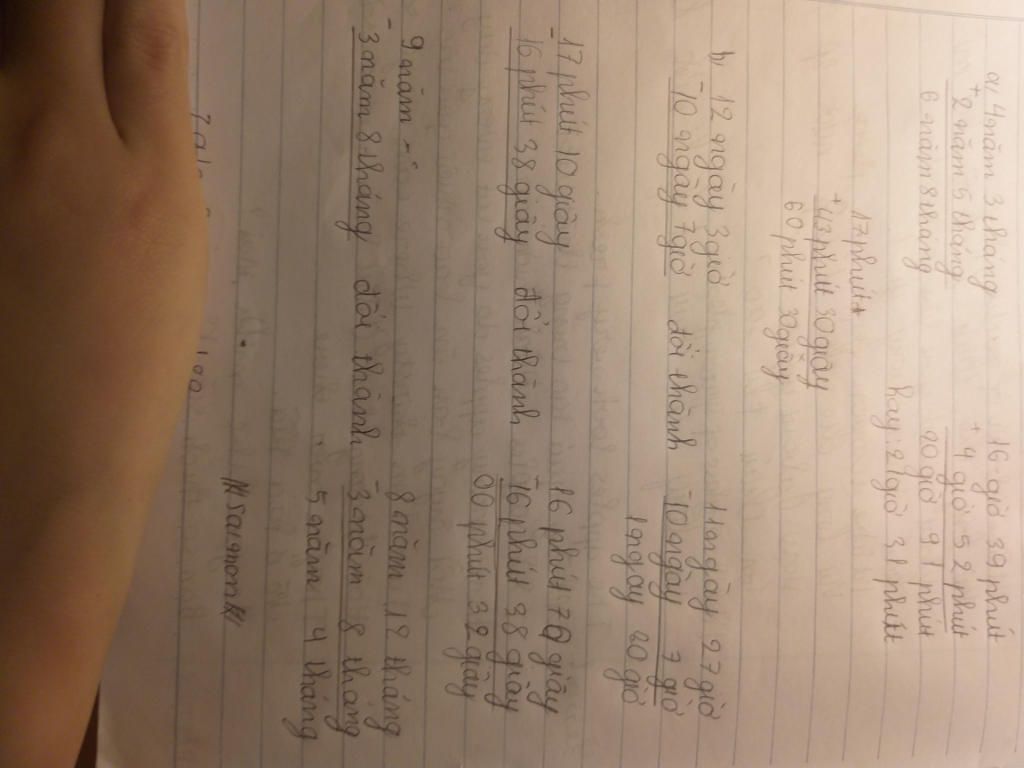 a, 4 năm 3 tháng
+ 2 năm 5 tháng
6 năm 8 thang
16 giờ 39 phút
+ 4 giờ 52 phút
20 giờ 91 phút
hay: 21 giờ 31 phút
17 phút +
+ 43 phút 30 giây
60 phút 30 giây
b, - 12 ngày 3 giờ
10 ngày 7 giờ đổi thành
11 ngày 27 giờ
- 10 ngày 7 giờ
1 ngay 20 giờ
- 17 phút 10 giây
16 phút 38 giây đổi thành
16 phút 70 giây
- 16 phút 38 giây
00 phút 32 giây
9 năm
- 3 năm 8 tháng đổi thành
8 năm 12 tháng
- 3 năm 8 tháng
5 năm 4 tháng